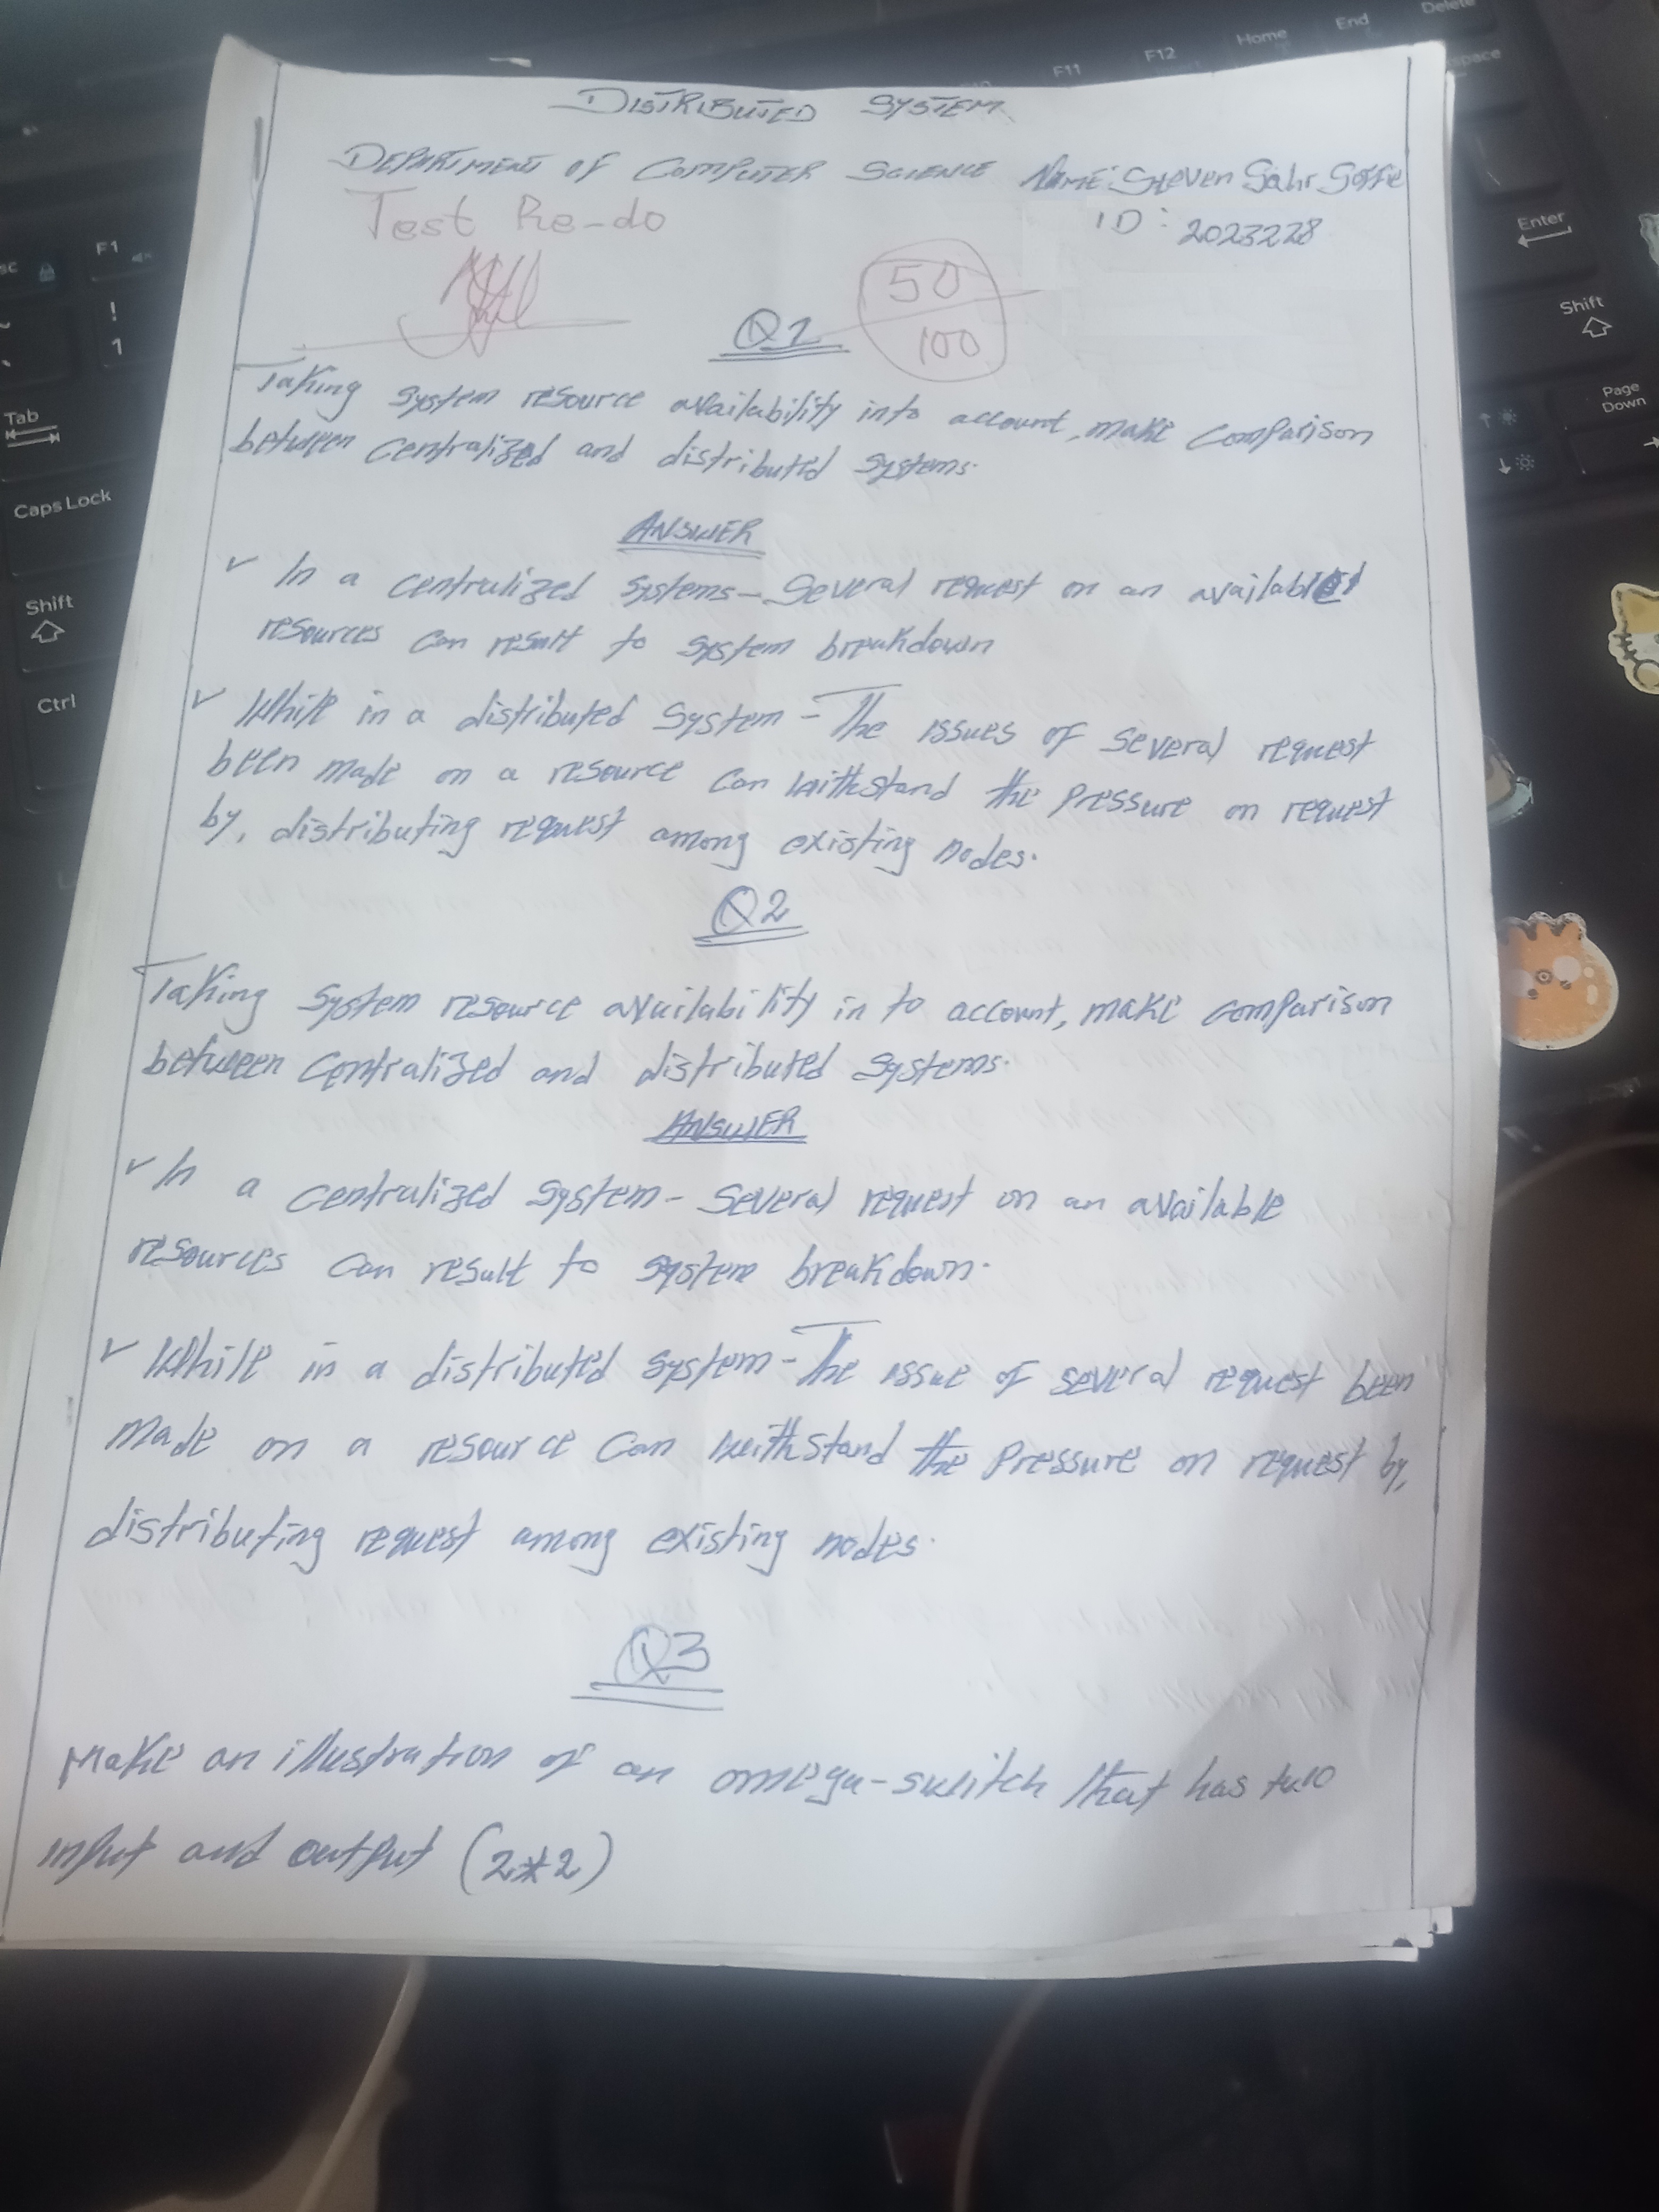 DISTRIBUTED SYSTEM
DEPARTMENT OF COMPUTER SCIENCE NAME: Steven Sahr Soffie
Test Re-do ID: 2023228
50
100
Q1
Taking system resource availability into account, make comparison
between centralized and distributed systems.
ANSWER
✓ In a centralized systems - Several request on an available
resources can result to system breakdown
✓ While in a distributed system - The issues of several request
been made on a resource can withstand the pressure on request
by, distributing request among existing nodes.
Q2
Taking system resource availability in to account, make comparison
between centralized and distributed systems.
ANSWER
✓ In a centralized system - Several request on an available
resources can result to system breakdown.
✓ While in a distributed system - The issue of several request been
made on a resource can withstand the pressure on request by,
distributing request among existing nodes.
Q3
Make an illustration of an omega-switch that has two
input and output (2*2)
Delete
End
Home
F12
F11
space
Enter
Shift
Page
Down
F1
!
1
Tab
Caps Lock
Shift
Ctrl